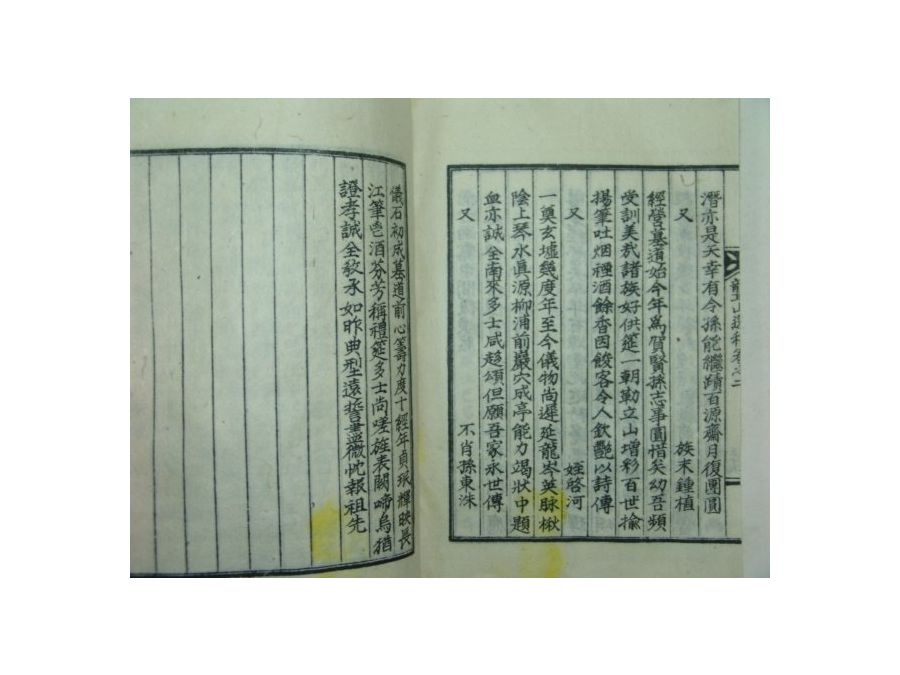 龍山遺稿卷之二
潛亦是天幸有令孫能繼蹟百源齋月復團圓
又 族末鍾植
經營墓道始今年爲賀賢孫志事圓惜矣幼吾頻
受訓美哉諸族好供筵一朝勒立山增彩百世揄
揚筆吐烟禋酒餘香因餕客令人欽艷以詩傳
又 姪啓河
一奠玄墟幾度年至今儀物尚遲延龍岑英脉楸
陰上琴水眞源柳浦前巖穴成亭能力竭狀中題
血亦誠全南來多士咸趍頌但願吾家永世傳
又 不肖孫東洙
儀石初成墓道前心籌力度十經年貞珉輝映長
江筆皀酒芬芳稱禮筵多士尚嗟旌表闕啼烏猶
證孝誠全敎承如昨典型遠誓盡微忱報祖先